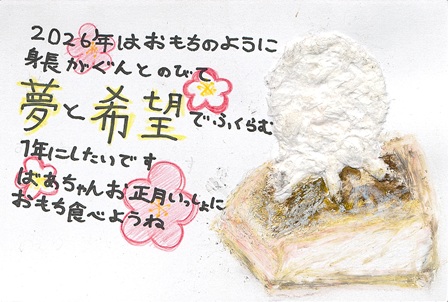 2026年はおもちのように
身長がぐんとのびて
夢と希望でふくらむ
1年にしたいです
ばあちゃんお正月いっしょに
おもち食べようね